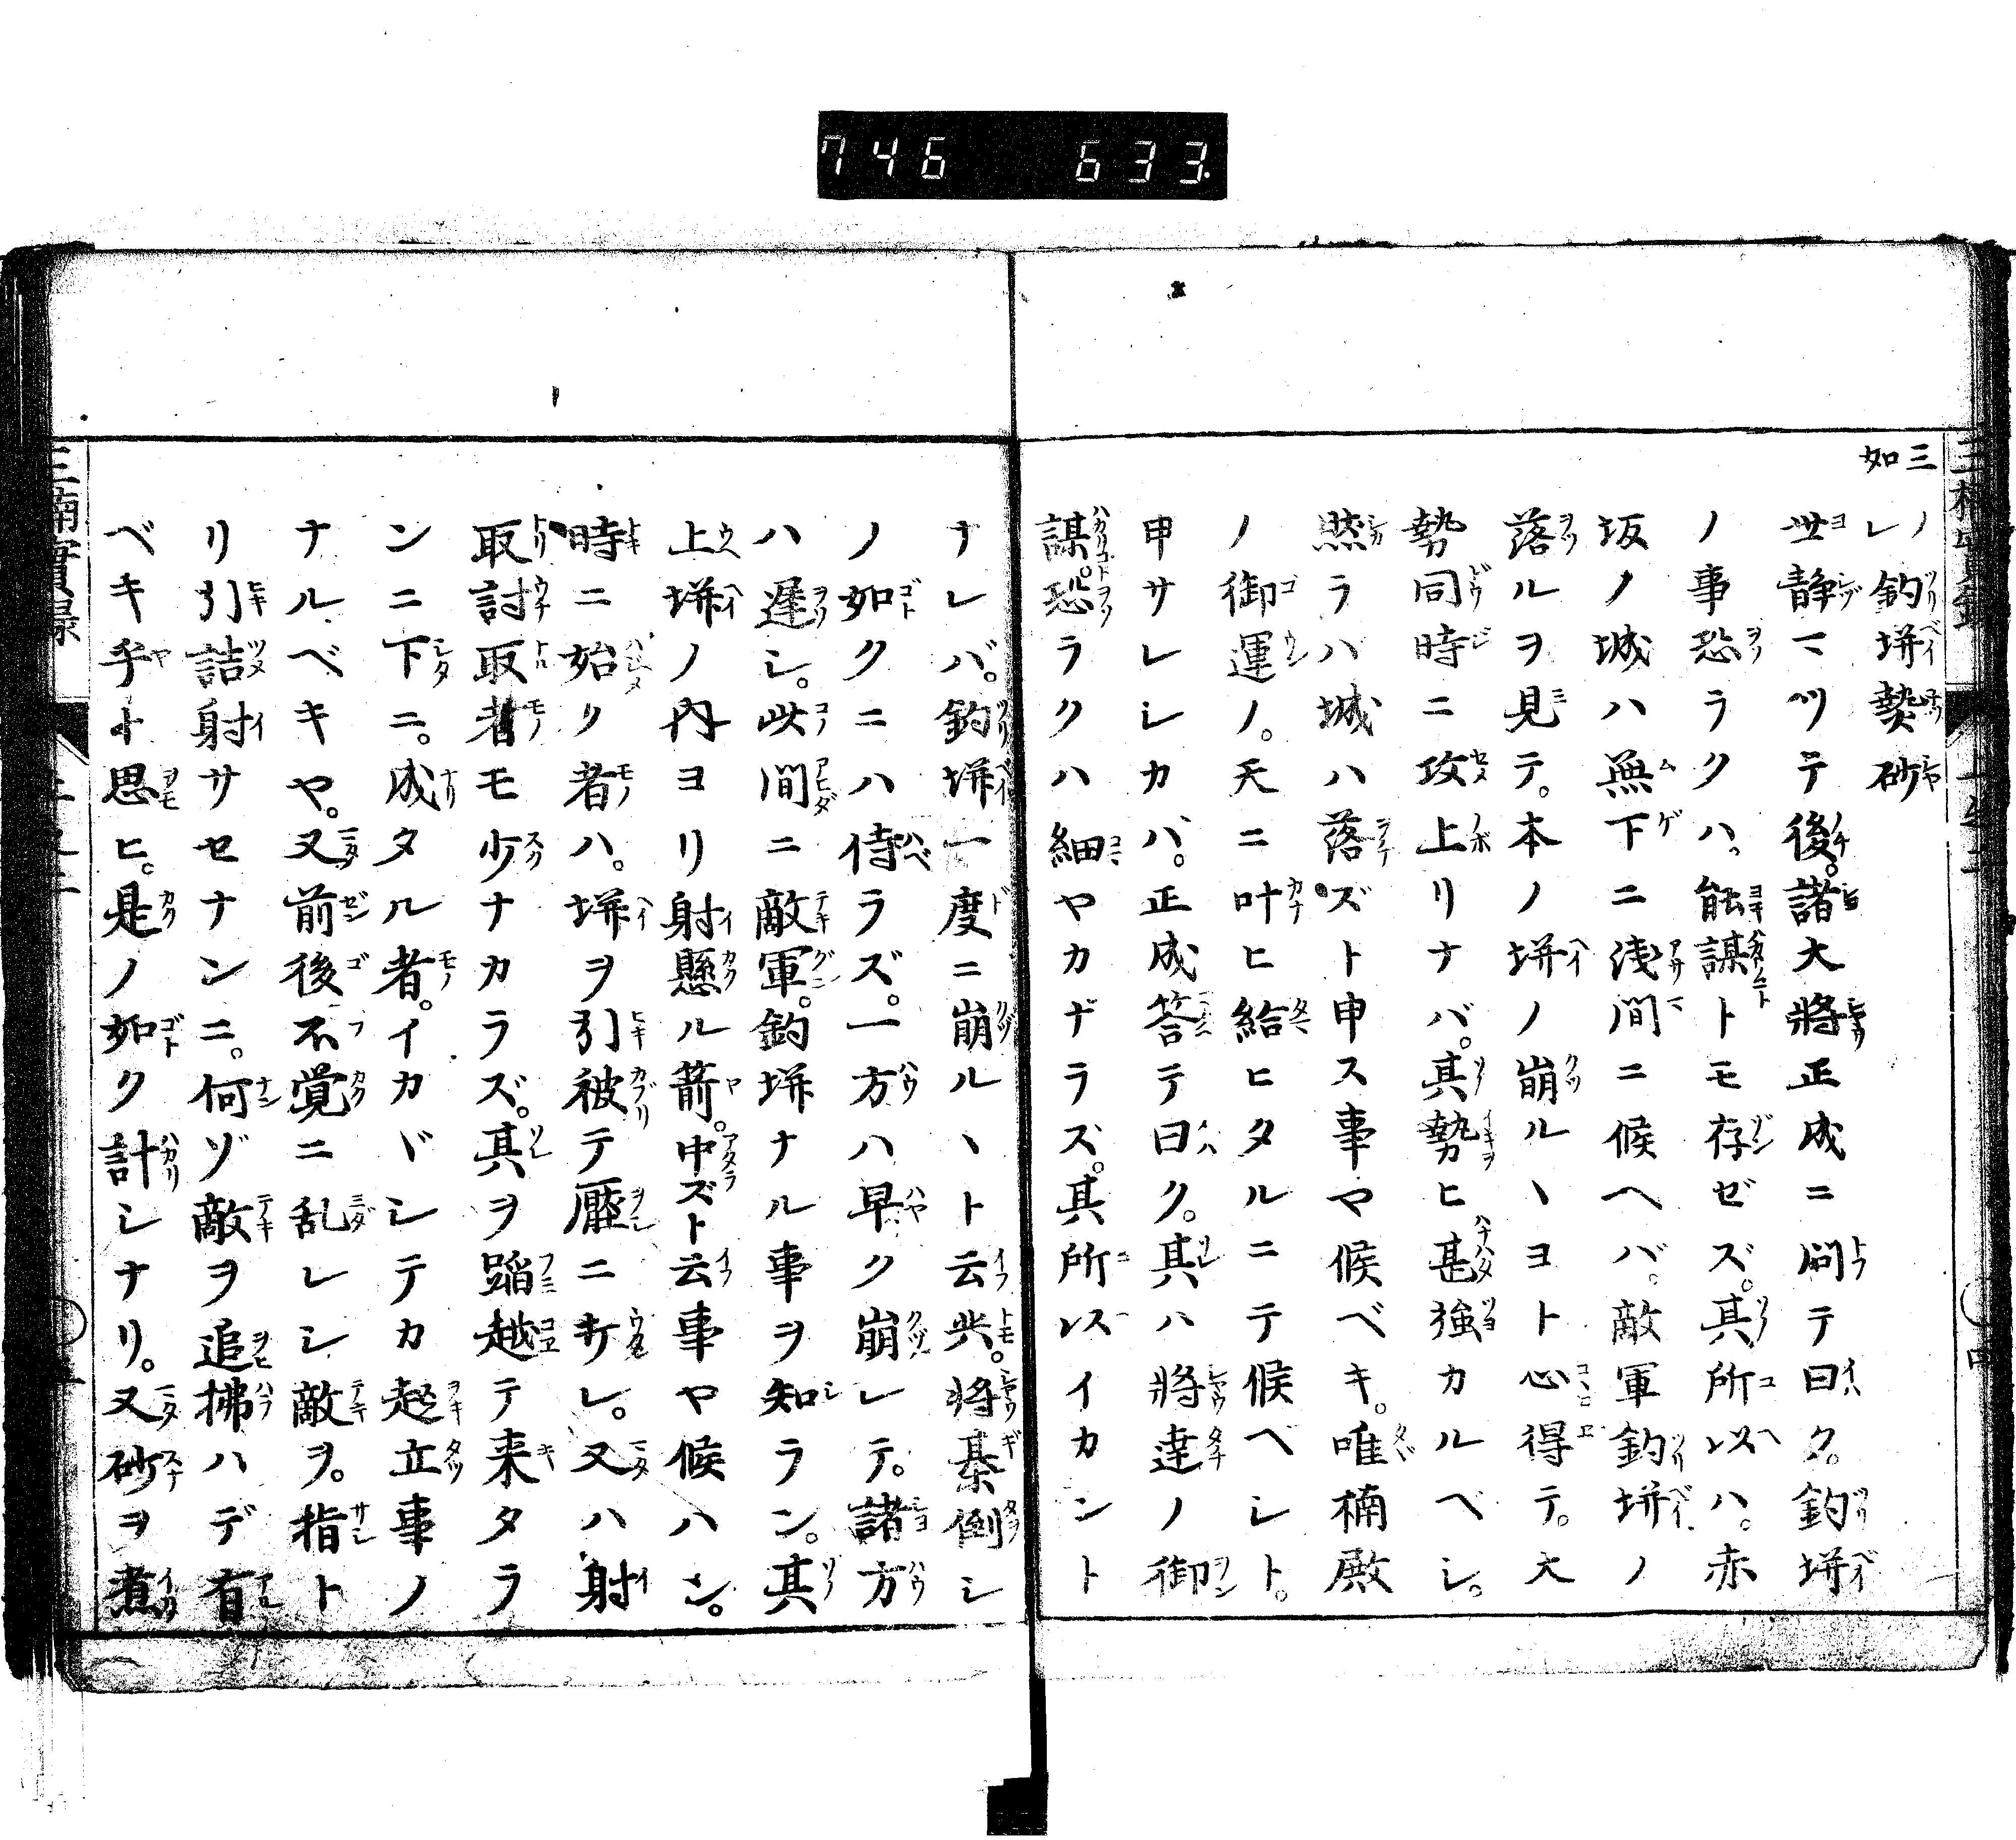 746 633.
三
如
ノ
レ釣塀熬砂
世静マツテ後。諸大將正成ニ問テ曰ク。釣塀
ノ事恐ラクハ。能謀トモ存ゼズ。其所以ハ。赤
坂ノ城ハ無下ニ浅間ニ候ヘバ。敵軍釣塀ノ
落ルヲ見テ。本ノ塀ノ崩ルヽヨト心得テ。大
勢同時ニ攻上リナバ。其勢ヒ甚強カルベシ。
然ラハ城ハ落ズト申ス事ヤ候ベキ。唯楠殿
ノ御運ノ。天ニ叶ヒ給ヒタルニテ候ベシト。
申サレシカバ。正成答テ曰ク。其ハ將達ノ御
謀。恐ラクハ細ヤカナラズ。其所以イカント
ナレバ。釣塀一度ニ崩ルヽト云共。將棊倒シ
ノ如クニハ侍ラズ。一方ハ早ク崩レテ。諸方
ハ遲シ。此間ニ敵軍。釣塀ナル事ヲ知ラン。其
上塀ノ内ヨリ射懸ル箭。中ズト云事ヤ候ハン。
時ニ始ク者ハ。塀ヲ引被テ壓ニ打レ。又ハ射
取討取者モ少ナカラズ。其ヲ蹈越テ来タラ
ンニ下ニ。成タル者。イカヾシテカ起立事ノ
ナルベキヤ。又前後不覚ニ乱レシ敵ヲ。指ト
リ引詰射サセナンニ。何ゾ敵ヲ追拂ハデ有
ベキ乎ト思ヒ。是ノ如ク計シナリ。又砂ヲ煮